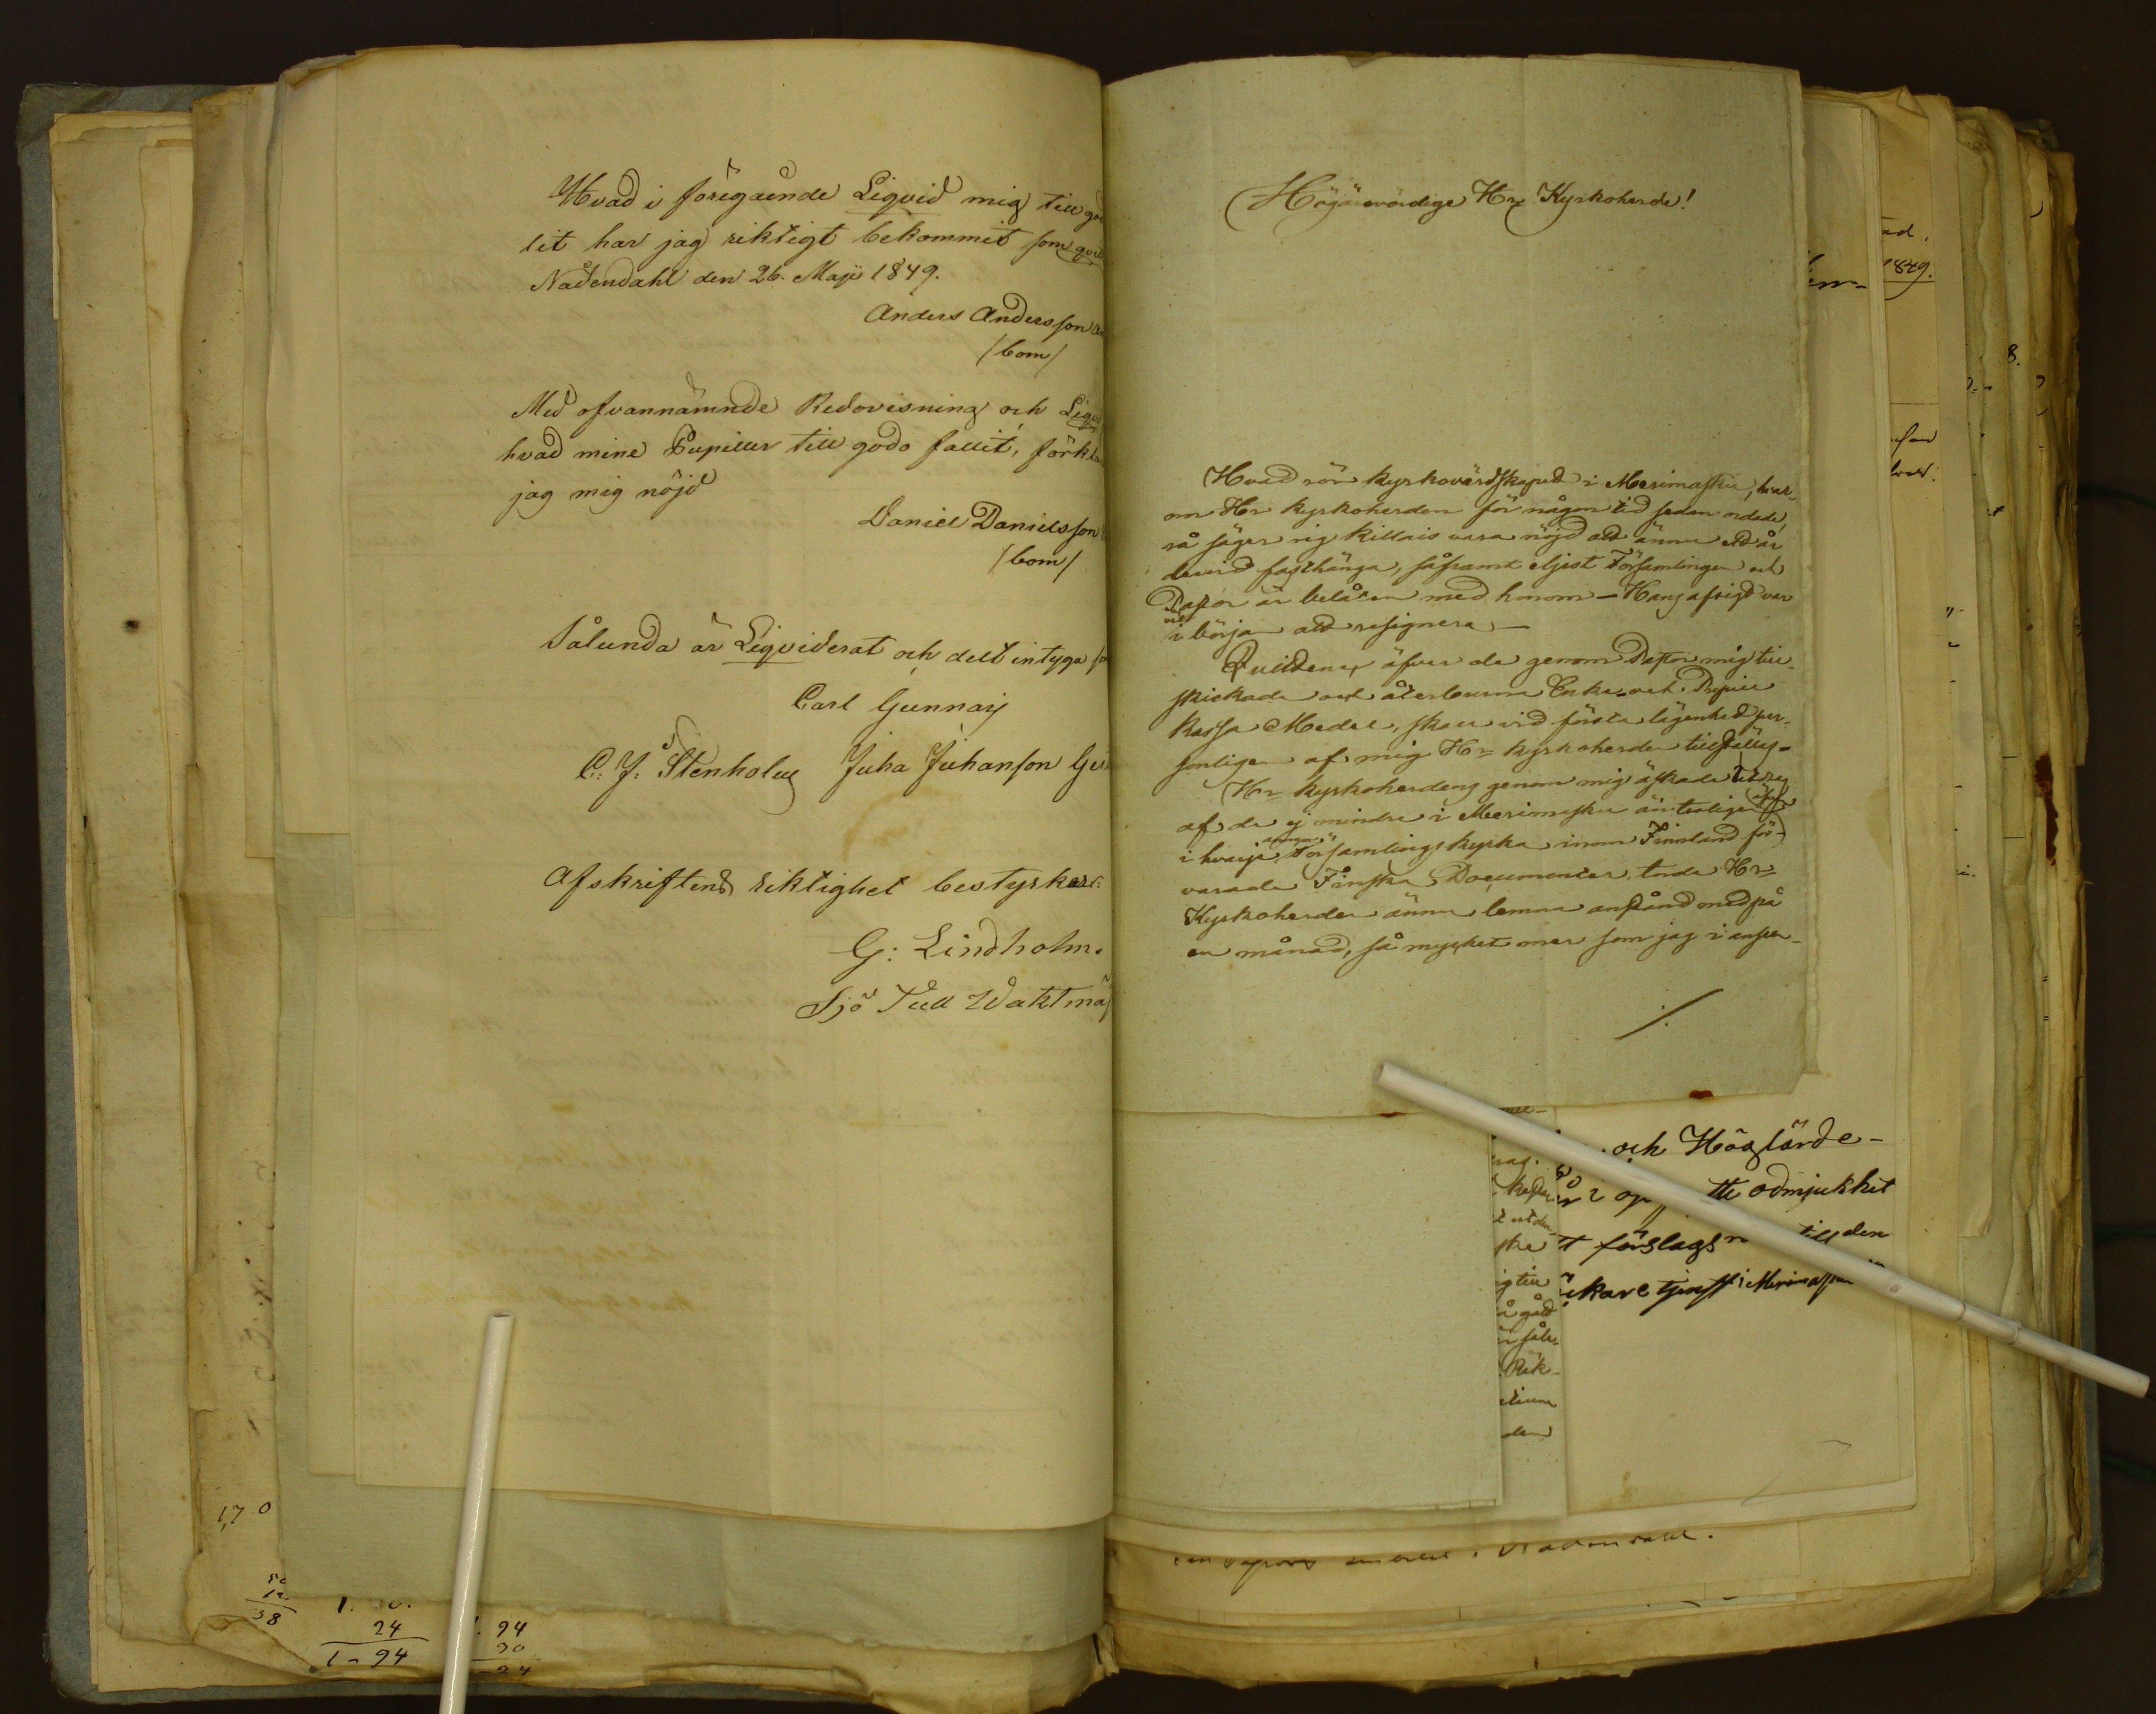 Hvad i föregående Liqvid mig till go
lit har jag riktigt bekommit som qvit
Nådendahl den 26. Maji 1849.
Anders Andersson
/bom/
Med ofvannämnde Redovisning och Liqv
hvad mine Pupiller till godo fallit, förkla
jag mig nöjd
Daniel Danielsson
/bom/
Sålunda är Liqviderat och dett intyga
Carl Gunnar
C: J: Stenholm Juha Juhansson
Afskriftens riktighet bestyrker:
G: Lindholm.
Sjö Tull Waktmä
1,7 0
12
38
24
1 - 94
94
90
24
Högärevördige Hr Kyrkoherde!
Hvad rör kyrkovärdskapet i Merimasku, hvar-
om Hr Kyrkoherden för någon tid sedan ordade,
så säger sig Killais vara nöjd att ännu ett år
dervid fasthänga, såframt eljest Församlingen och
Pastor är belåten med honom - Hans afsigt var
väl
i början att resignera -
Quittencer öfver de genom Pastor mig till-
skickade och återburna Enke- och Pupill
Kassa Medel, skall vid första lägenhet per-
sonligen af mig Hr Kyrkoherden tillställas -
Hr Kyrkoherdens genom mig äskade Utdrag
af de ej mindre i Merimasku än troligen
i hvarje Församlings kyrka inom Finnland för-
varade Finska Documenter, torde Hr
Kyrkoherden ännu lemna anstånd med på
en månad, så mycket mer som jag i anse-
/.
och Höglärde -
ödmjukhet
förslags till den
kare tjenst i Merimasku
ad.
1849.
8.